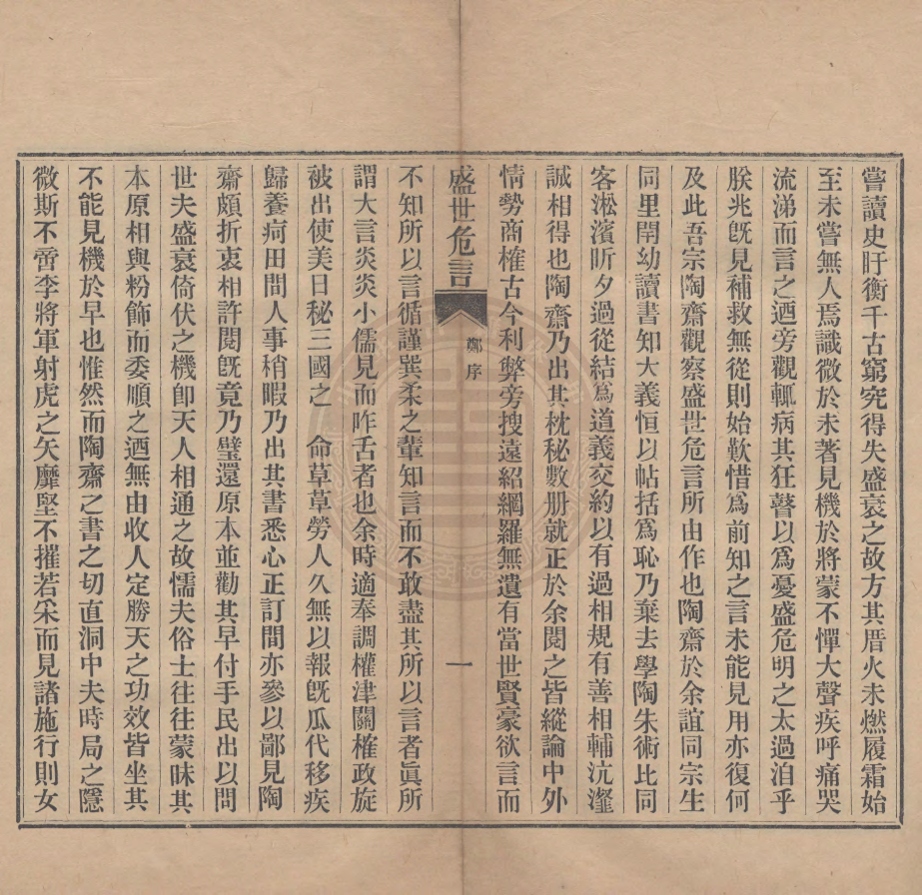 嘗讀史盱衡千古窮究得失盛衰之故方其厝火未燃履霜始
至未嘗無人焉識微於未著見機於將蒙不憚大聲疾呼痛哭
流涕而言之迺旁觀輒病其狂瞽以爲憂盛危明之太過洎乎
朕兆旣見補救無從則始歎惜爲前知之言未能見用亦復何
及此吾宗陶齋觀察盛世危言所由作也陶齋於余誼同宗生
同里閈幼讀書知大義恒以帖括爲恥乃棄去學陶朱術比同
客淞濱昕夕過從結爲道義交約以有過相規有善相輔沆瀣
誠相得也陶齋乃出其枕秘數册就正於余閱之皆縱論中外
情勢商榷古今利弊旁搜遠紹網羅無遺有當世賢豪欲言而
盛世危言
鄭序
一
不知所以言循謹巽柔之輩知言而不敢盡其所以言者眞所
謂大言炎炎小儒見而咋舌者也余時適奉調權津關榷政旋
被出使美日秘三國之 命草草勞人久無以報旣瓜代移疾
歸養疴田間人事稍暇乃出其書悉心正訂間亦參以鄙見陶
齋頗折衷相許閱旣竟乃璧還原本並勸其早付手民出以問
世夫盛衰倚伏之機卽天人相通之故懦夫俗士往往蒙昧其
本原相與粉飾而委順之迺無由收人定勝天之功效皆坐其
不能見機於早也惟然而陶齋之書之切直洞中夫時局之隱
微斯不啻李將軍射虎之矢靡堅不摧若采而見諸施行則女